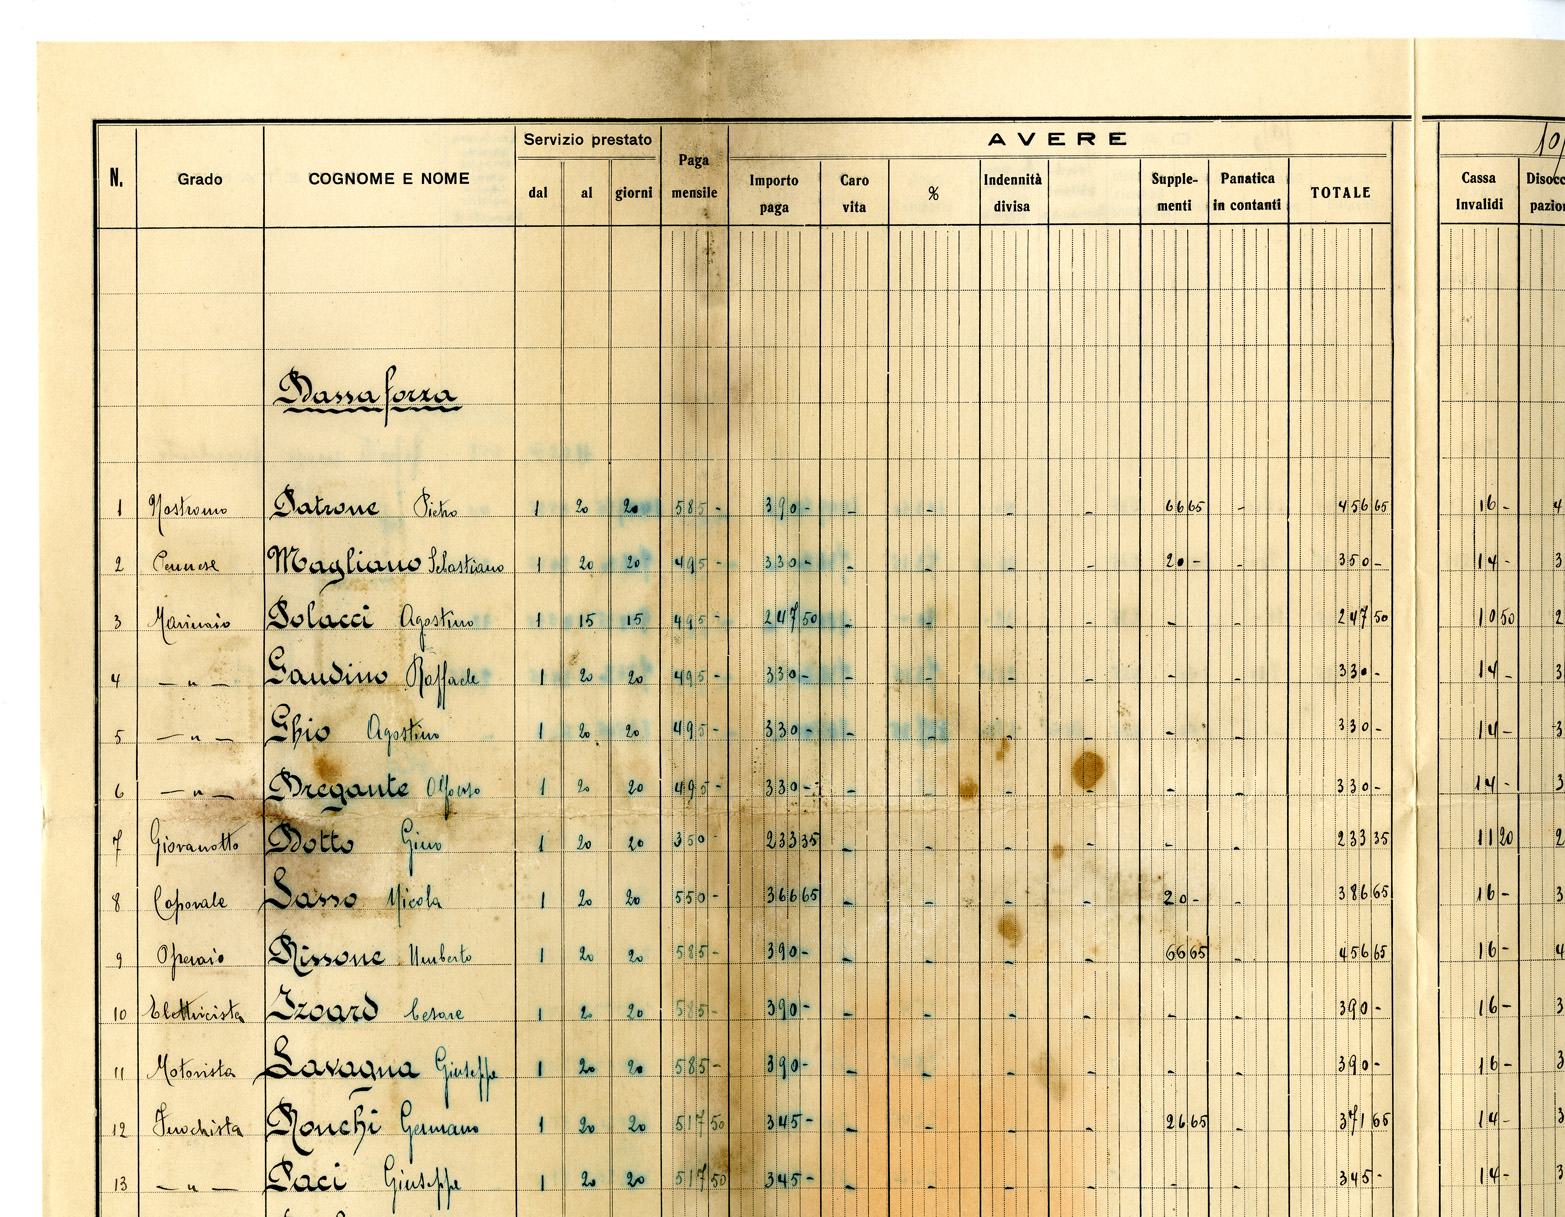 AVERE
Servizio prestato
N. Grado COGNOME E NOME dal al giorni Paga mensile Importo paga Caro vita % Indennità divisa Supple- menti Panatica in contanti TOTALE Cassa Invalidi
Bassa forza
1 Nostromo Patrone Pietro 1 20 20 585 - 390 - - - - - 66 65 - 456 65 16 - 4
2 Pennese Magliano Sebastiano 1 20 20 495 - 330 - - - - - 20 - - 350 - 14 - 3
3 Marinaio Polacci Agostino 1 15 15 495 - 247 50 - - - - - - 247 50 10 50 2
4 — " — Gaudino Raffaele 1 20 20 495 - 330 - - - - - - - 330 - 14 - 3
5 — " — Ghio Agostino 1 20 20 495 - 330 - - - - - - - 330 - 14 - 3
6 — " — Bregante Alfonso 1 20 20 495 - 330 - - - - - - - 330 - 14 - 3
7 Giovanotto Botto Gino 1 20 20 350 - 233 35 - - - - - - 233 35 11 20 2
8 Caporale Sasso Nicola 1 20 20 550 - 366 65 - - - - 20 - - 386 65 16 - 3
9 Operaio Rissone Umberto 1 20 20 585 - 390 - - - - - 66 65 - 456 65 16 - 4
10 Elettricista Izoard Cesare 1 20 20 585 - 390 - - - - - - - 390 - 16 - 3
11 Motorista Lavagna Giuseppe 1 20 20 585 - 390 - - - - - - - 390 - 16 - 3
12 Fuochista Ronchi Germano 1 20 20 517 50 345 - - - - - 26 65 - 371 65 14 - 3
13 — " — Paci Giuseppe 1 20 20 517 50 345 - - - - - - - 345 - 14 - 3